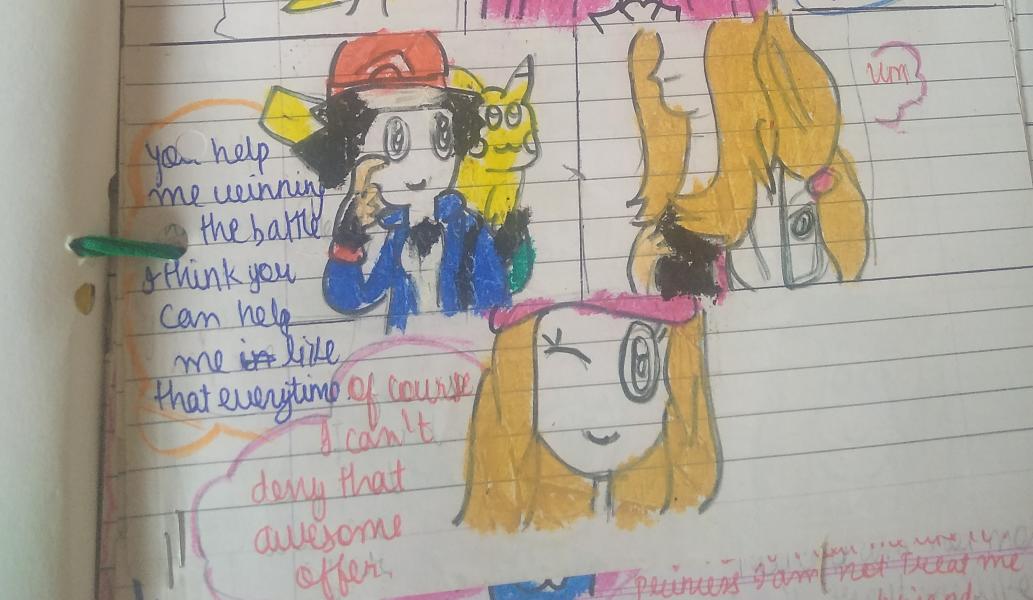 you help
me winning
the battle
I think you
can help
me in like
that everytime
um
of course
I can't
deny that
awesome
offer.
princess I am not Treat me